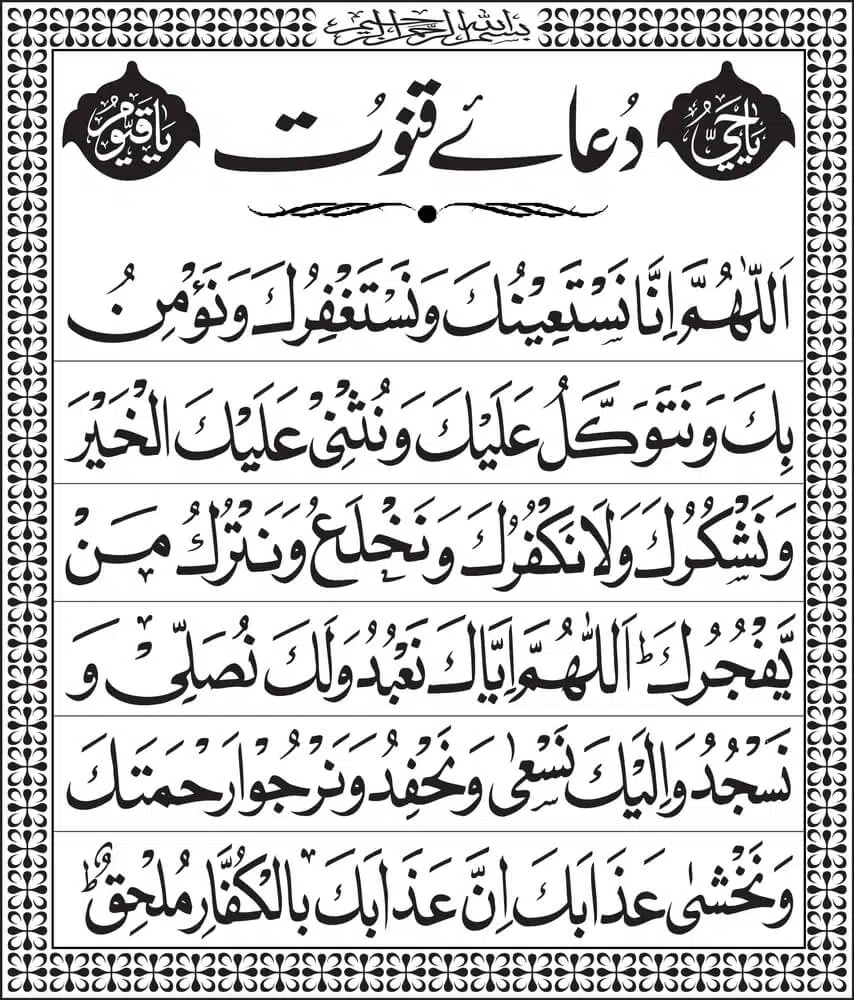 بسم الله الرحمن الرحيم
يَا حَيُّ
دُعائے قنوُت
يَا قَيُّومُ
اَللّٰهُمَّ اِنَّا نَسْتَعِيْنُكَ وَنَسْتَغْفِرُكَ وَنُؤْمِنُ
بِكَ وَنَتَوَكَّلُ عَلَيْكَ وَنُثْنِيْ عَلَيْكَ الْخَيْرَ
وَنَشْكُرُكَ وَلَا نَكْفُرُكَ وَنَخْلَعُ وَنَتْرُكُ مَنْ
يَّفْجُرُكَ ؕ اَللّٰهُمَّ اِيَّاكَ نَعْبُدُ وَلَكَ نُصَلِّيْ وَ
نَسْجُدُ وَاِلَيْكَ نَسْعٰى وَنَحْفِدُ وَنَرْجُوْا رَحْمَتَكَ
وَنَخْشٰى عَذَابَكَ اِنَّ عَذَابَكَ بِالْكُفَّارِ مُلْحِقٌ ؕ